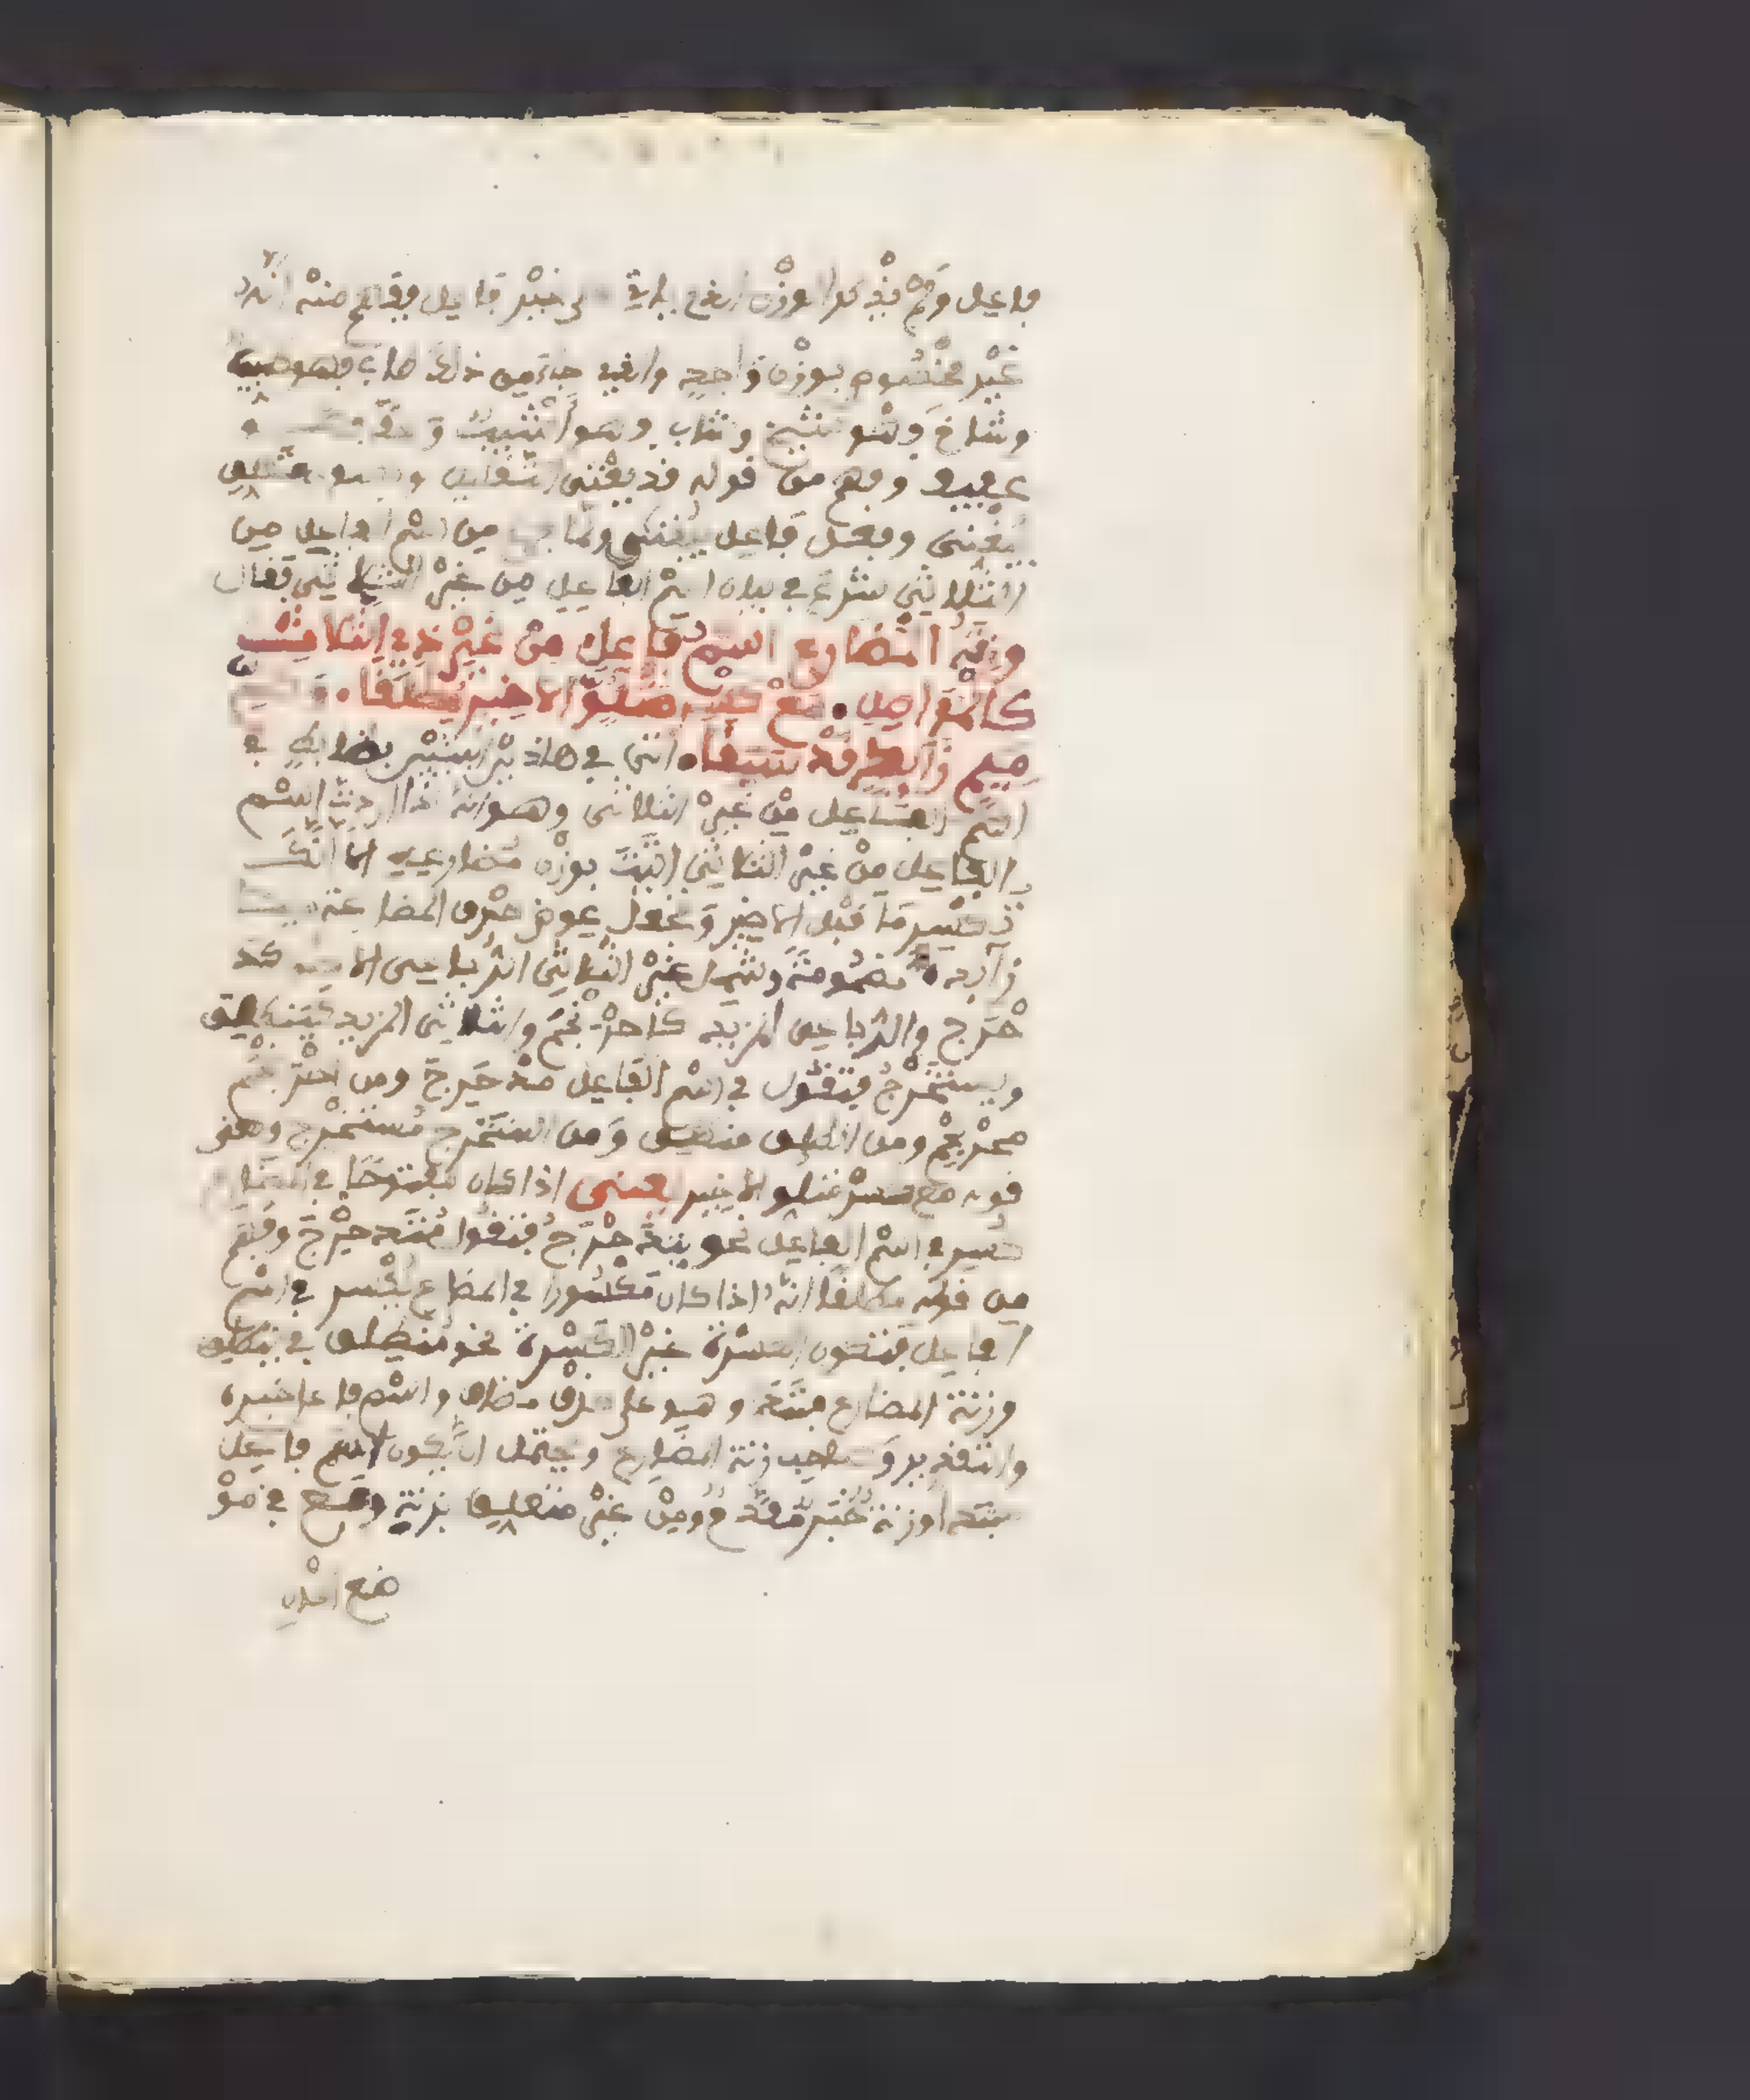 فاعل وفم يفد هذا الوزن الذي ياتي على غير فاعل فيفهم منه انه
غير مخصوم بوزن واحد والذي جاء من ذلك طاب فهو طيب
وشاخ وهو شيخ وشاب وهو اشيب و
عفيف وفهم من قوله قد يغنى القليل وهو
يغنى وفعل فاعل يغنى ولما من اسم الفاعل من
الثلاثي شرع في بيان اسم الفاعل من غير الثلاثي فقال
وزنة المضارع اسم فاعل من غير ذي الثلاث
كالمواصل مع كسر متلو الاخير مطلقا وضم
ميم زايد قد سبقا اتى في هاذين البيتين بضابط في
اسم الفاعل من غير الثلاثي وهو انه اذا اردت اسم
الفاعل من غير الثلاثي اتيت بوزن مضارعه الا انك
تكسر ما قبل الاخير وتجعل عوض حرف المضارعة ميما
زايدة مضمومة وشمل غير الثلاثي الرباعي الاصول كد
حرج والرباعي المزيد كاحرنجم والثلاثي المزيد كينطلق
ويستخرج فتقول في اسم الفاعل من دحرج ومن احرنجم
محرنجم ومن انطلق منطلق ومن استخرج مستخرج ومعنى
قوله مع كسر متلو الاخير يعني اذا كان مفتوحا في المضا
كسر في اسم الفاعل نحو يتدحرج فتقول متدحرج وفهم
من قوله مطلقا انه اذا كان مكسورا في المضارع يكسر في اسم
الفاعل فتكون الكسرة غير الكسرة نحو منطلق في ينطلق
وزنة المضارع مبتدا وهو على حذف مضاف واسم فاعل خبره
والتقدير وصاحب زنة المضارع ويحتمل ان يكون اسم فاعل
مبتدا وزنة خبر مقدم ومن غير متعلق بزنة ومع في مو
ضع الحال